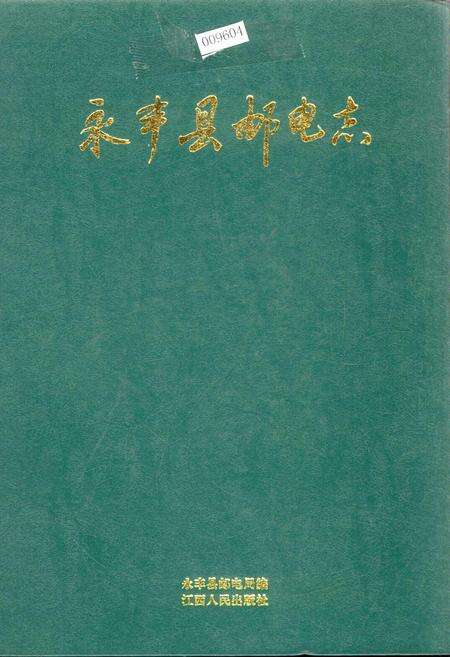 009604
永丰县邮电志
永丰县邮电局编
江西人民出版社